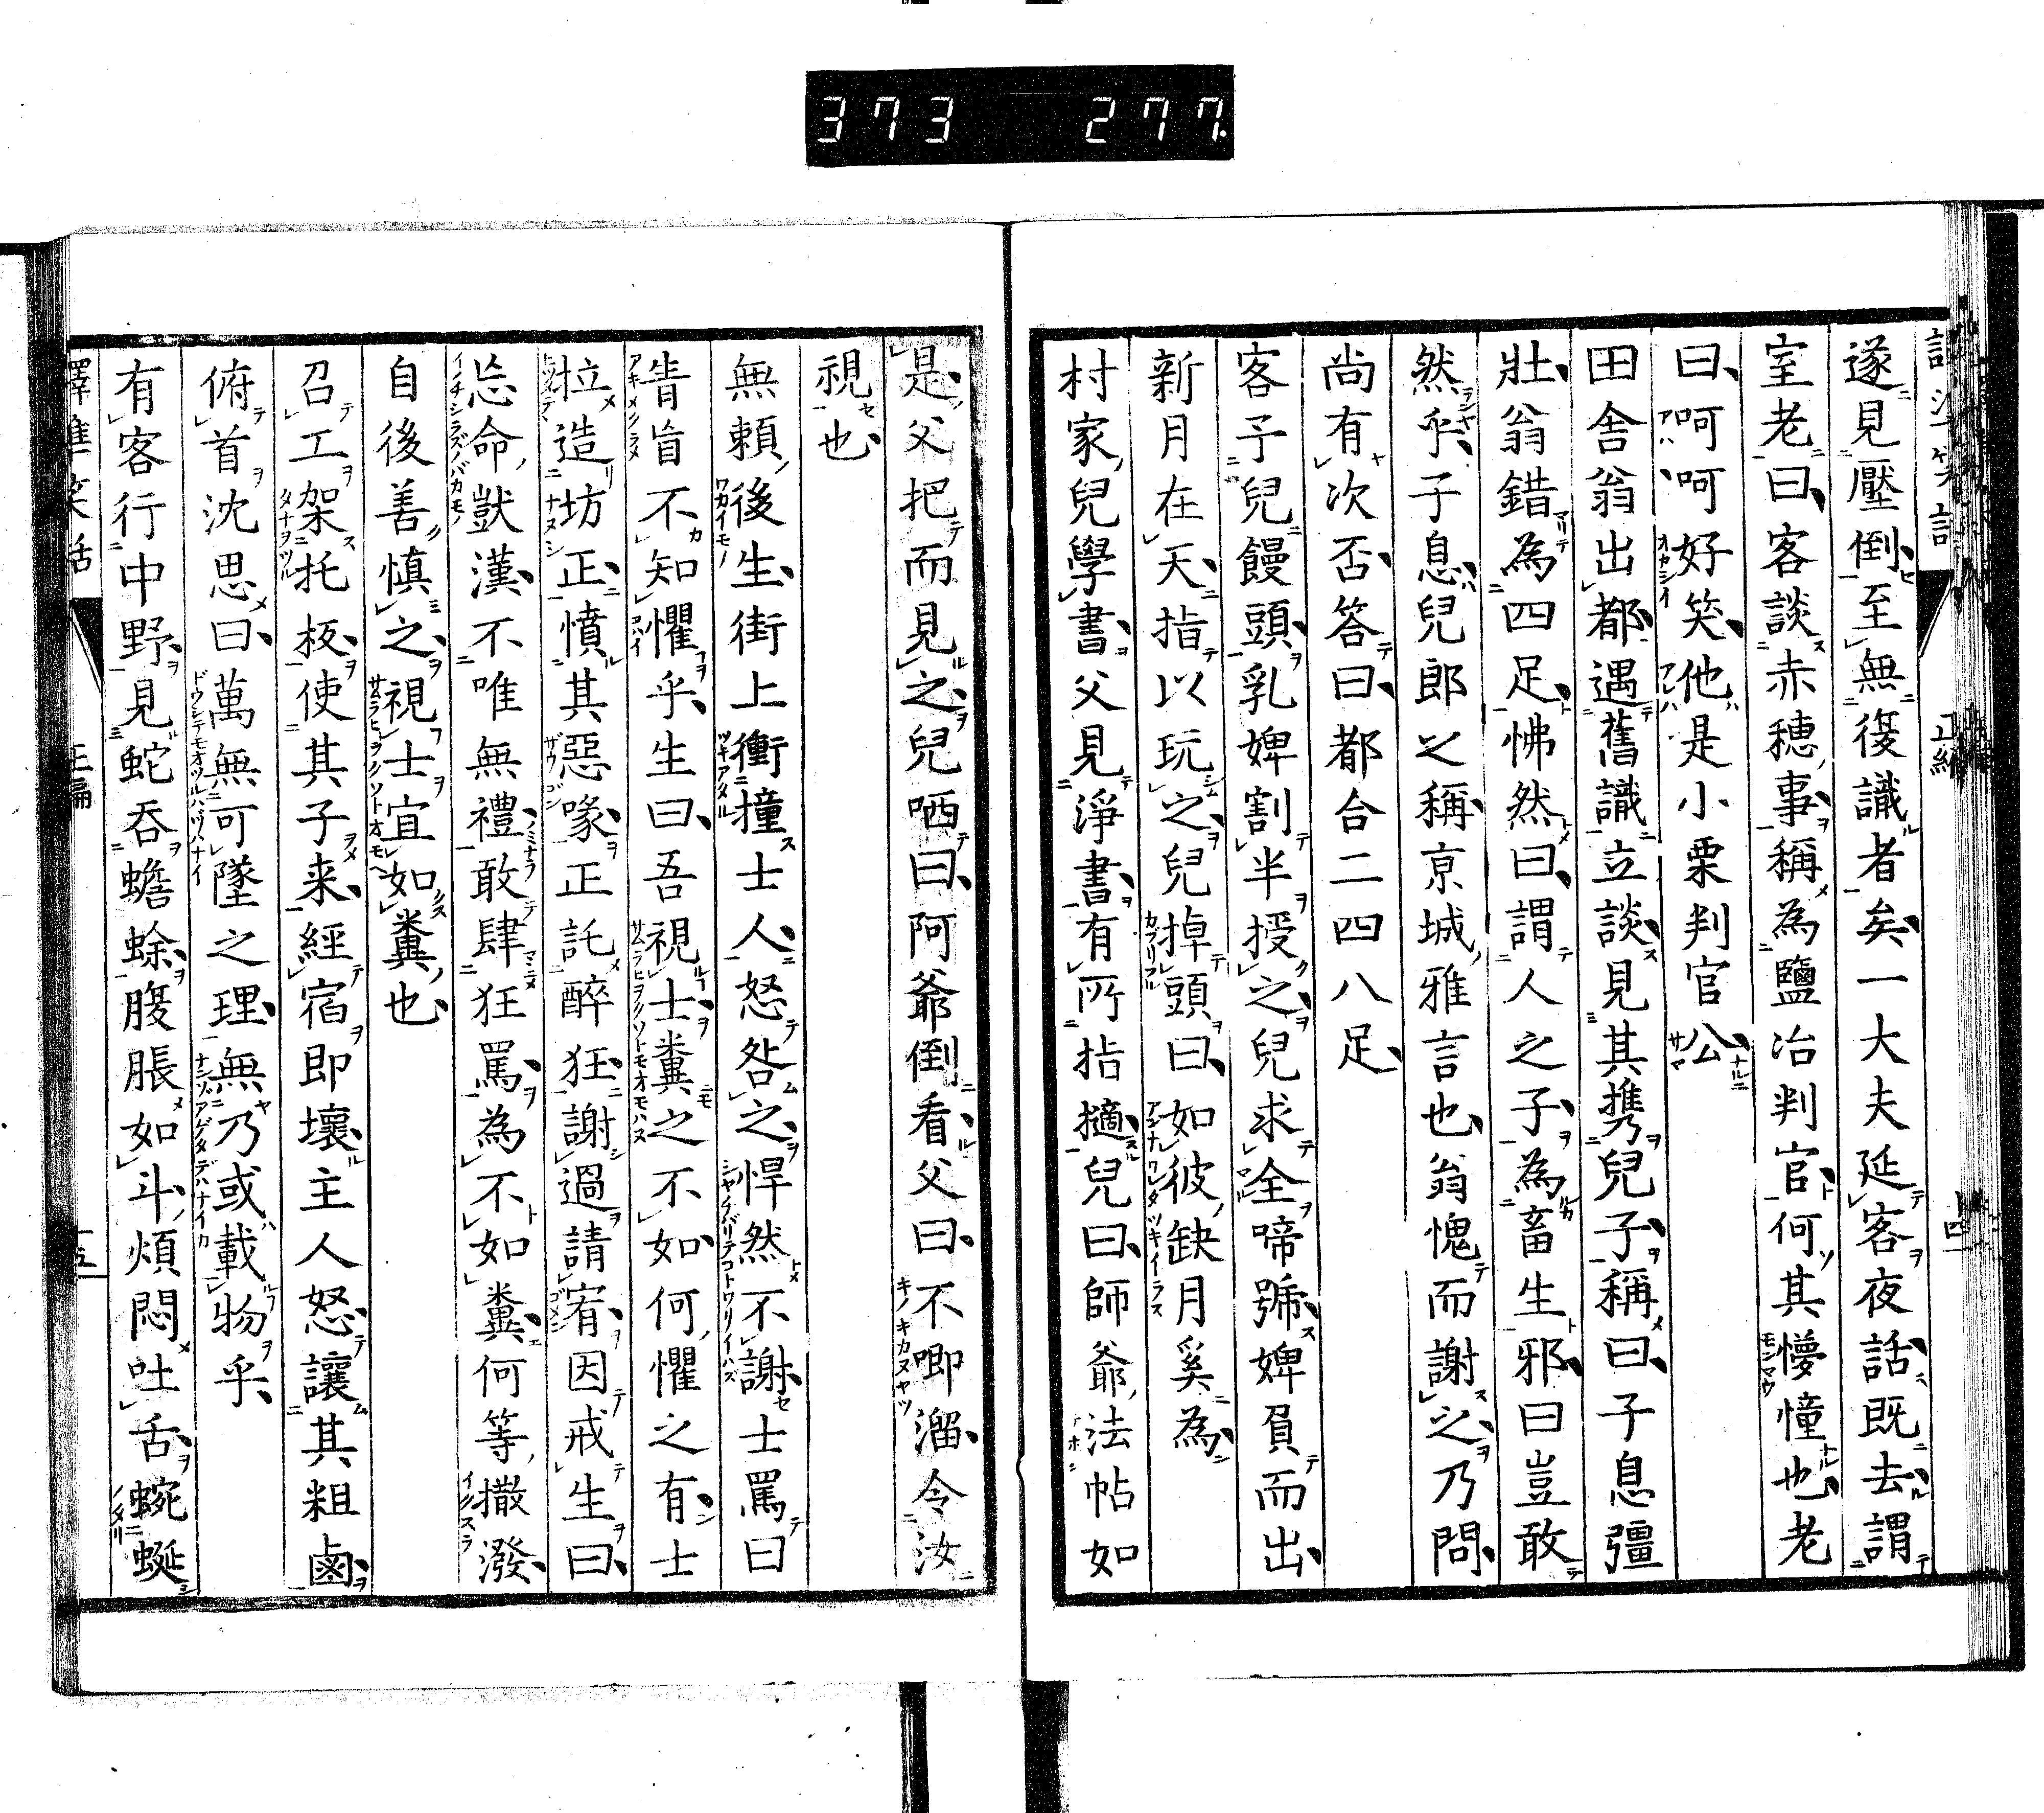 373 277.
遂見壓倒至無復識者矣一大夫延客夜話既去謂
室老曰客談赤穗事稱為鹽冶判官何其懞憧也老
曰呵呵好笑他是小栗判官公
田舎翁出都遇舊識立談見其携兒子稱曰子息彊
壯翁錯為四足怫然曰謂人之子為畜生邪曰豈敢
然乎子息兒郎之稱京城雅言也翁愧而謝之乃問
尚有次否答曰都合二四八足
客予兒饅頭乳婢割半授之兒求全啼號婢負而出
新月在天指以玩之兒掉頭曰如彼缺月奚為
村家兒學書父見淨書有所指擿兒曰師爺法帖如
是父把而見之兒哂曰阿爺倒看父曰不唧溜令汝
視也
無頼後生街上衝撞士人怒咎之悍然不謝士罵曰
眚盲不知懼乎生曰吾視士糞之不如何懼之有士
拉造坊正憤其惡喙正託醉狂謝過請宥因戒生曰
忘命獃漢不唯無禮敢肆狂罵為不如糞何等撒潑
自後善慎之視士宜如糞也
召工架托板使其子来經宿即壞主人怒讓其粗鹵
俯首沈思曰萬無可墜之理無乃或載物乎
有客行中野見蛇呑蟾蜍腹脹如斗煩悶吐舌蜿蜒
譯準笑話
正編
五
正編
四